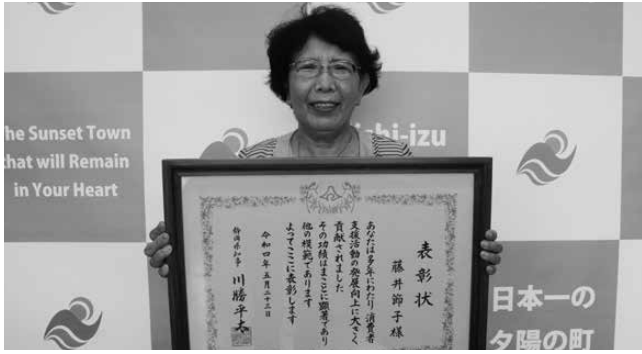 he Sunset Town
that will Remain
in Your Heart
shi-izu
表彰状
藤井節子様
あなたは多年にわたり消費者
支援活動の発展向上に大きく
貢献されました
その功績はまことに顕著であり
他の模範であります
よってここに表彰します
令和四年五月二十三日
静岡県知事 川勝平太
日本一の
夕陽の町